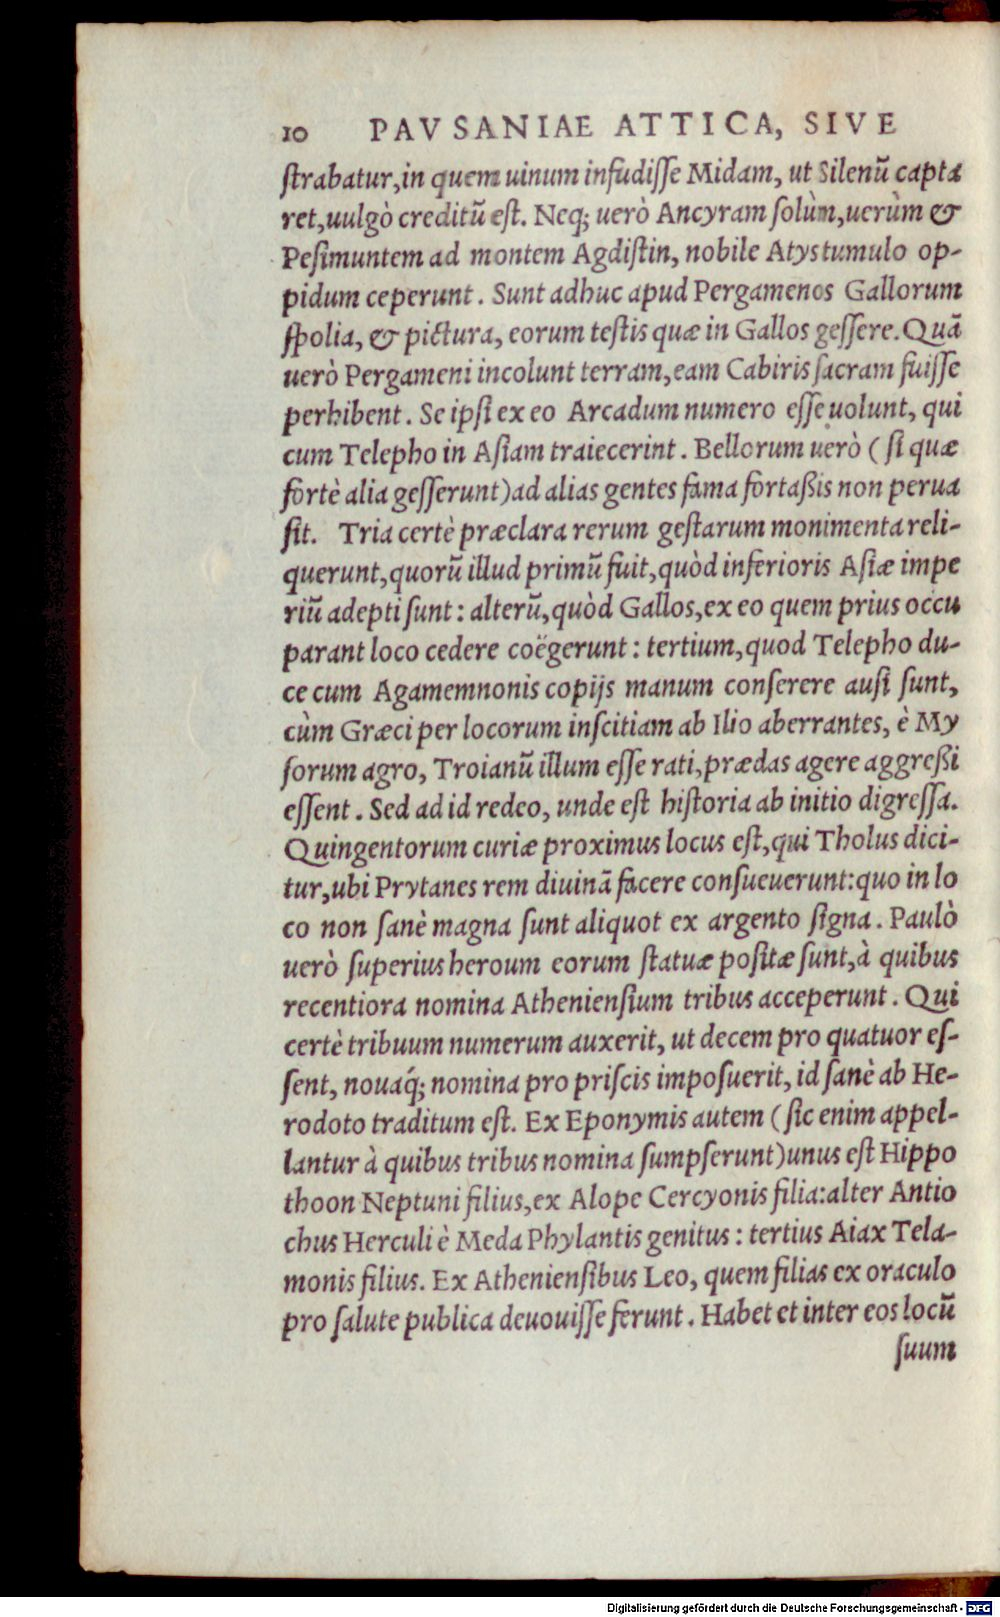 10 PAVSANIAE ATTICA, SIVE
ſtrabatur,in quem uinum infudiſſe Midam, ut Silenū capta
ret,uulgò creditū eſt. Neq; uerò Ancyram ſolùm,uerùm &
Peſimuntem ad montem Agdiſtin, nobile Atys tumulo op-
pidum ceperunt. Sunt adhuc apud Pergamenos Gallorum
ſpolia, & pictura, eorum teſtis quæ in Gallos geſſere. Quā
uerò Pergameni incolunt terram,eam Cabiris ſacram fuiſſe
perhibent. Se ipſi ex eo Arcadum numero eſſe uolunt, qui
cum Telepho in Aſiam traiecerint. Bellorum uerò ( ſi quæ
fortè alia geſſerunt)ad alias gentes fama fortaßis non perua
ſit. Tria certè præclara rerum geſtarum monimenta reli-
querunt,quorū illud primū fuit,quòd inferioris Aſiæ impe
riū adepti ſunt: alterū,quòd Gallos,ex eo quem prius occu
parant loco cedere coëgerunt: tertium,quod Telepho du-
ce cum Agamemnonis copijs manum conſerere auſi ſunt,
cùm Græci per locorum inſcitiam ab Ilio aberrantes, è My
ſorum agro, Troianū illum eſſe rati,prædas agere aggreßi
eſſent. Sed ad id redeo, unde eſt hiſtoria ab initio digreſſa.
Quingentorum curiæ proximus locus eſt,qui Tholus dici-
tur,ubi Prytanes rem diuinā facere conſueuerunt:quo in lo
co non ſanè magna ſunt aliquot ex argento ſigna. Paulò
uerò ſuperius heroum eorum ſtatuæ poſitæ ſunt,à quibus
recentiora nomina Athenienſium tribus acceperunt. Qui
certè tribuum numerum auxerit, ut decem pro quatuor eſ-
ſent, nouaq́; nomina pro priſcis impoſuerit, id ſanè ab He-
rodoto traditum eſt. Ex Eponymis autem ( ſic enim appel-
lantur à quibus tribus nomina ſumpſerunt)unus eſt Hippo
thoon Neptuni filius,ex Alope Cercyonis filia:alter Antio
chus Herculi è Meda Phylantis genitus: tertius Aiax Tela-
monis filius. Ex Athenienſibus Leo, quem filias ex oraculo
pro ſalute publica deuouiſſe ferunt. Habet et inter eos locū
ſuum
Digitalisierung gefördert durch die Deutsche Forschungsgemeinschaft - DFG